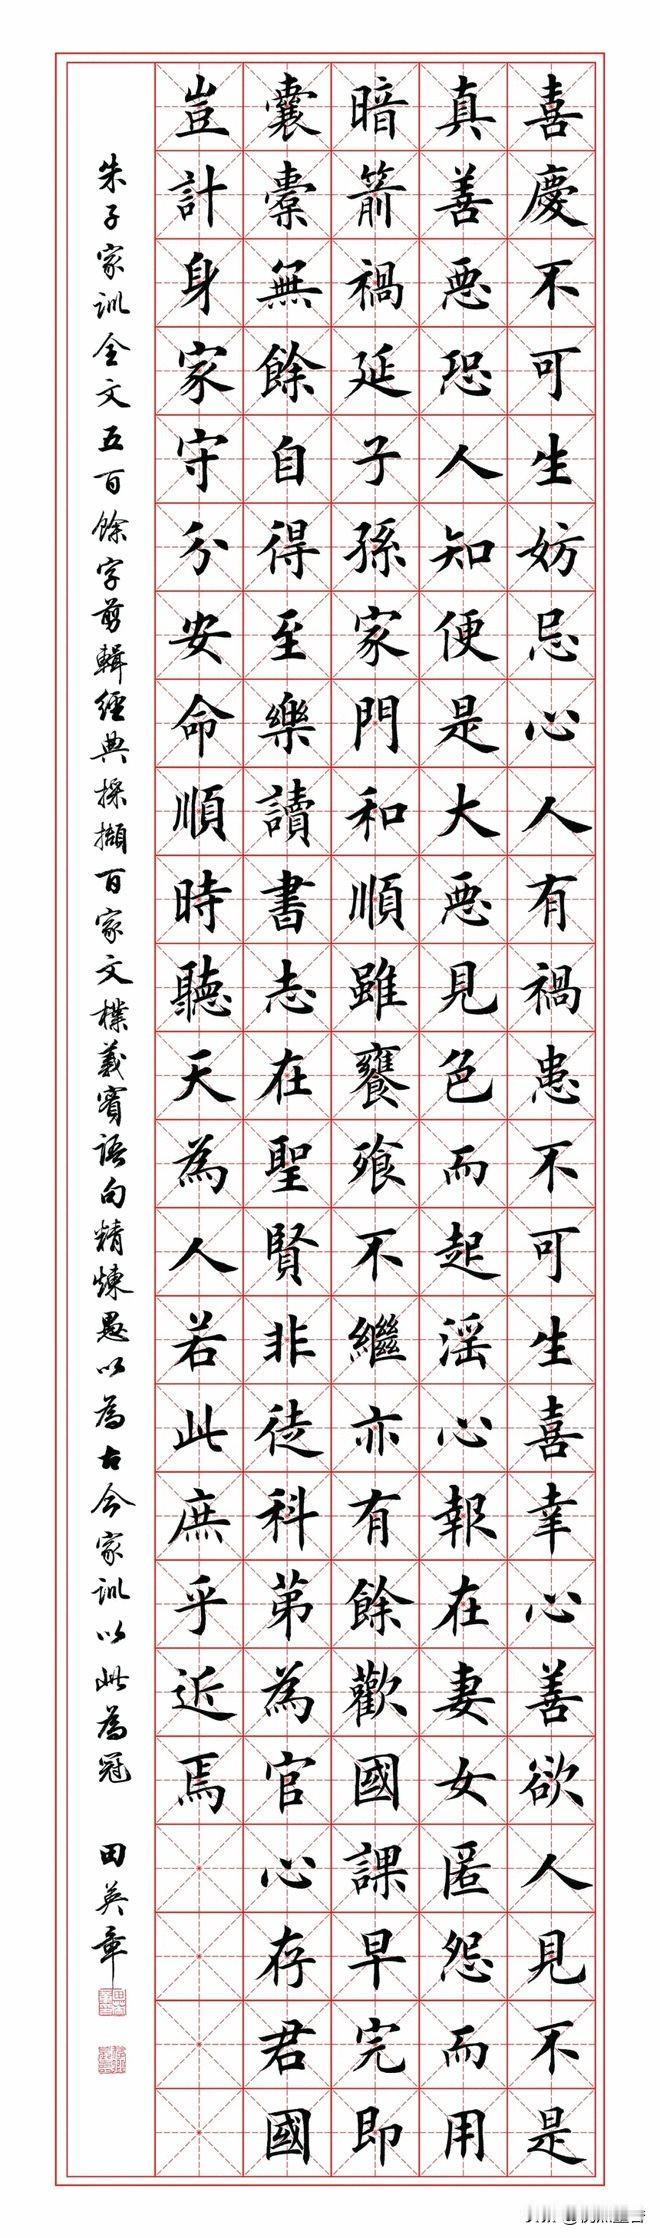 喜慶不可生妨忌心人有禍患不可生喜幸心善欲人見不是
真善惡恐人知便是大惡見色而起淫心報在妻女匿怨而用
暗箭禍延子孫家門和順雖饔飧不繼亦有餘歡國課早完即
囊橐無餘自得至樂讀書志在聖賢非徒科第為官心存君國
豈計身家守分安命順時聽天為人若此庶乎近焉
朱子家訓全文五百餘字剪輯經典採擷百家文樸義賓語句精煉愚以為古今家訓以此為冠 田英章